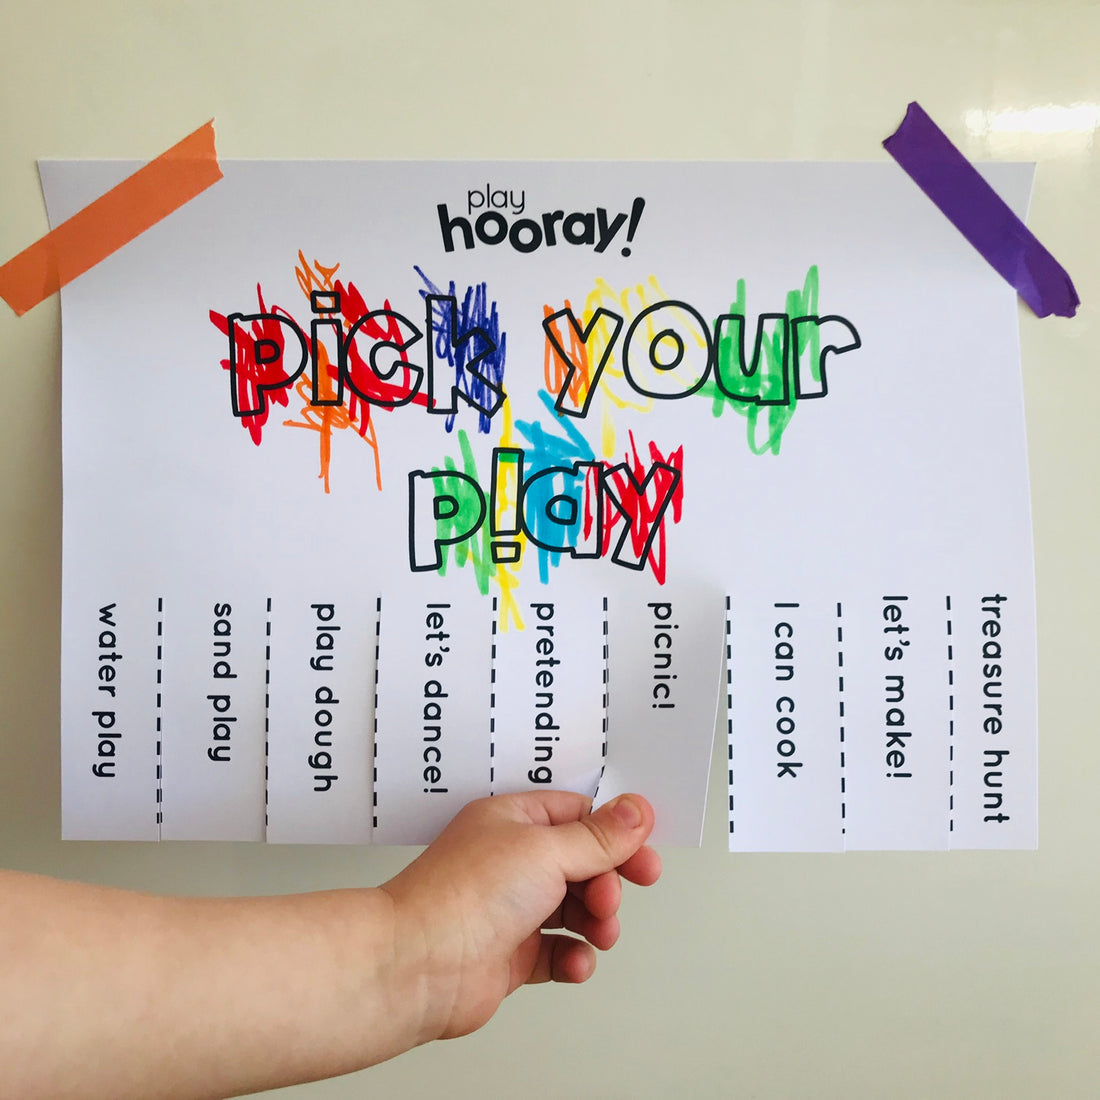 play
hooray!
pick your
p!ay
water play
sand play
play dough
let's dance!
pretending
picnic!
I can cook
let's make!
treasure hunt